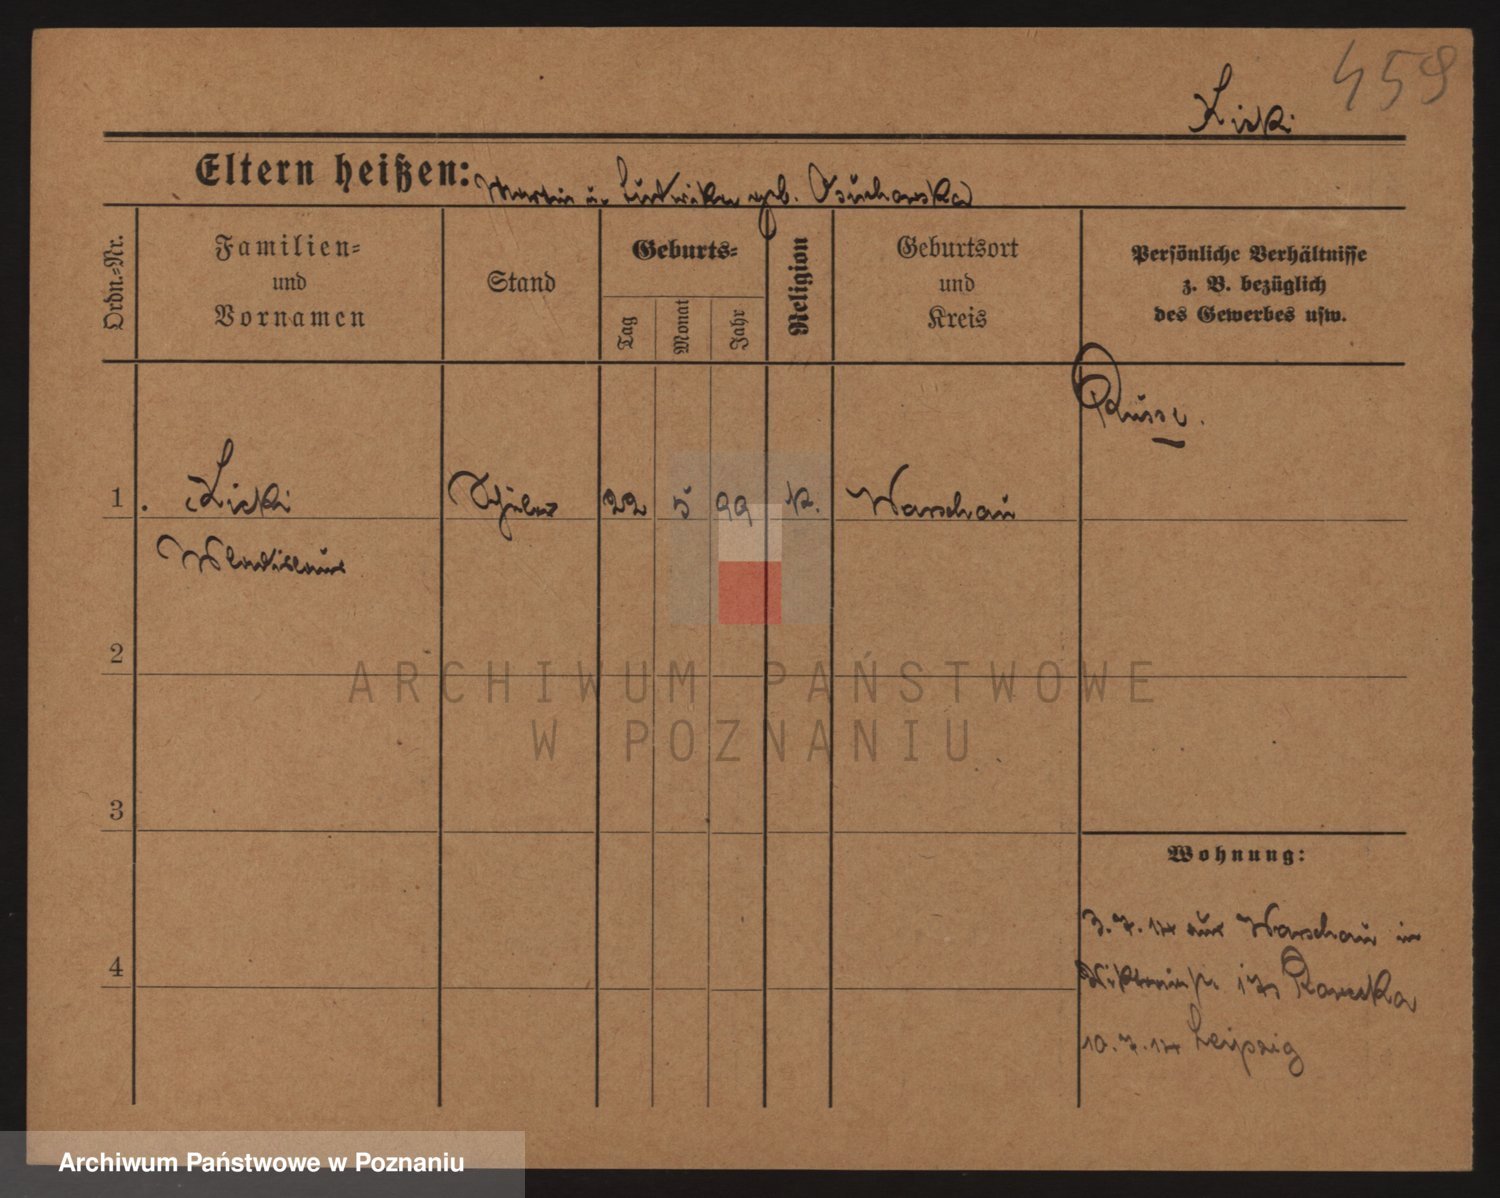 459
Licki
Eltern heißen: Martin u. Ludwika geb. Osuchowska
Ordn.-Nr.
Familien-
und
Vornamen
Stand
Geburts-
Tag
Monat
Jahr
Religion
Geburtsort
und
Kreis
Persönliche Verhältnisse
z. B. bezüglich
des Gewerbes usw.
Russe.
1 Licki Schüler 22 5 99 k. Warschau
Wladislaus
2
3
4
Wohnung:
3.7.14 aus Warschau in
Viktoriastr.
10.7.14 Leipzig
ARCHIWUM PAŃSTWOWE
W POZNANIU
Archiwum Państwowe w Poznaniu